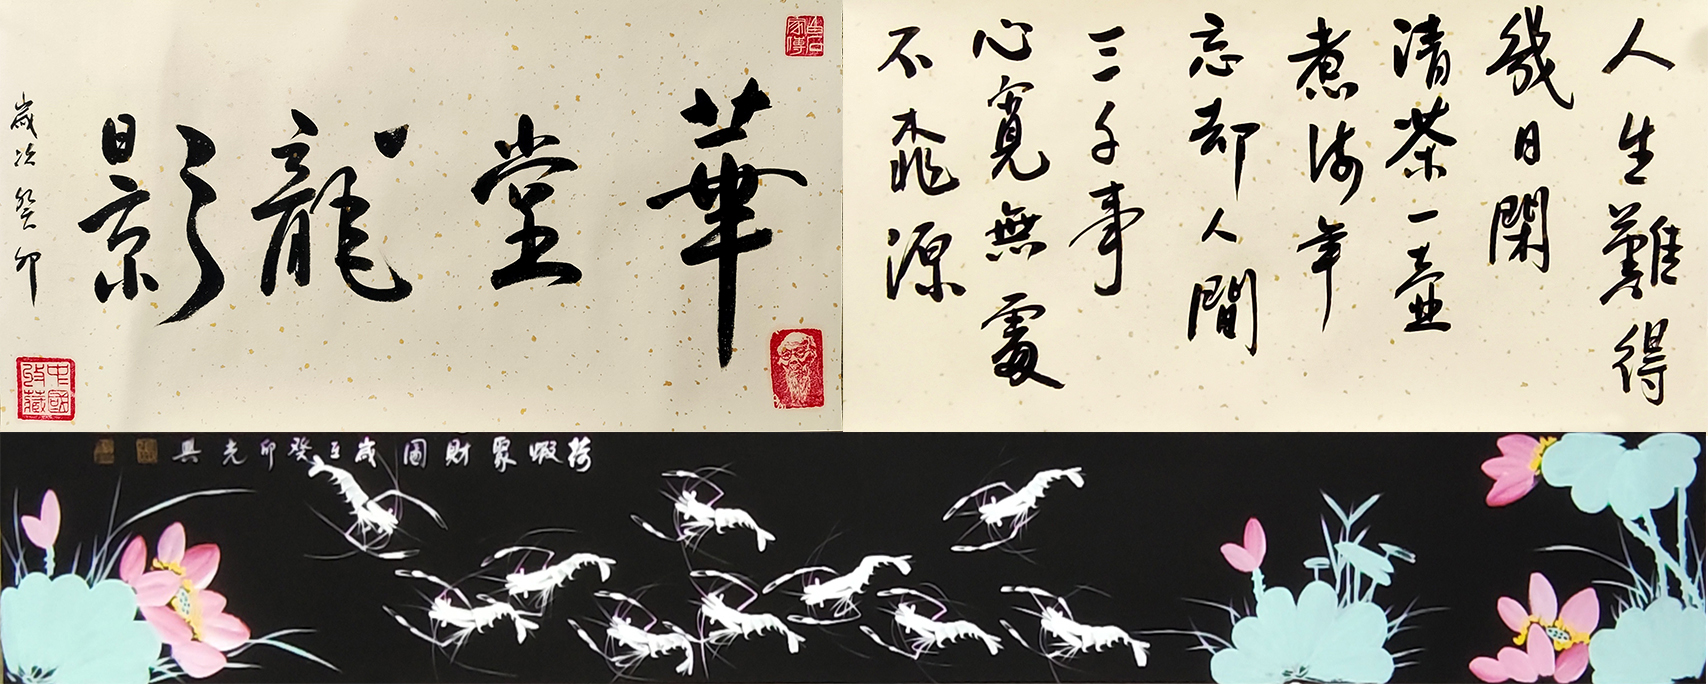 華堂龍影
歲次癸卯
中國收藏
人生難得
幾日閑
清茶一壺
煮年
忘却人間
三千事
心寬無處
不桃源
荷蝦聚財圖 歲癸卯